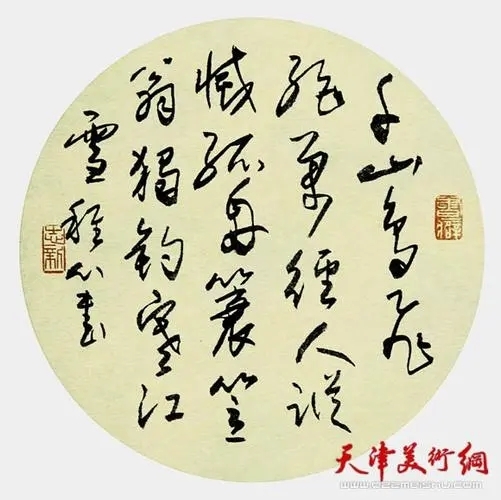 千山鳥飛
絕萬徑人蹤
滅孤舟蓑笠
翁獨釣寒江
雪
志新
天津美術網
www.022meishu.com